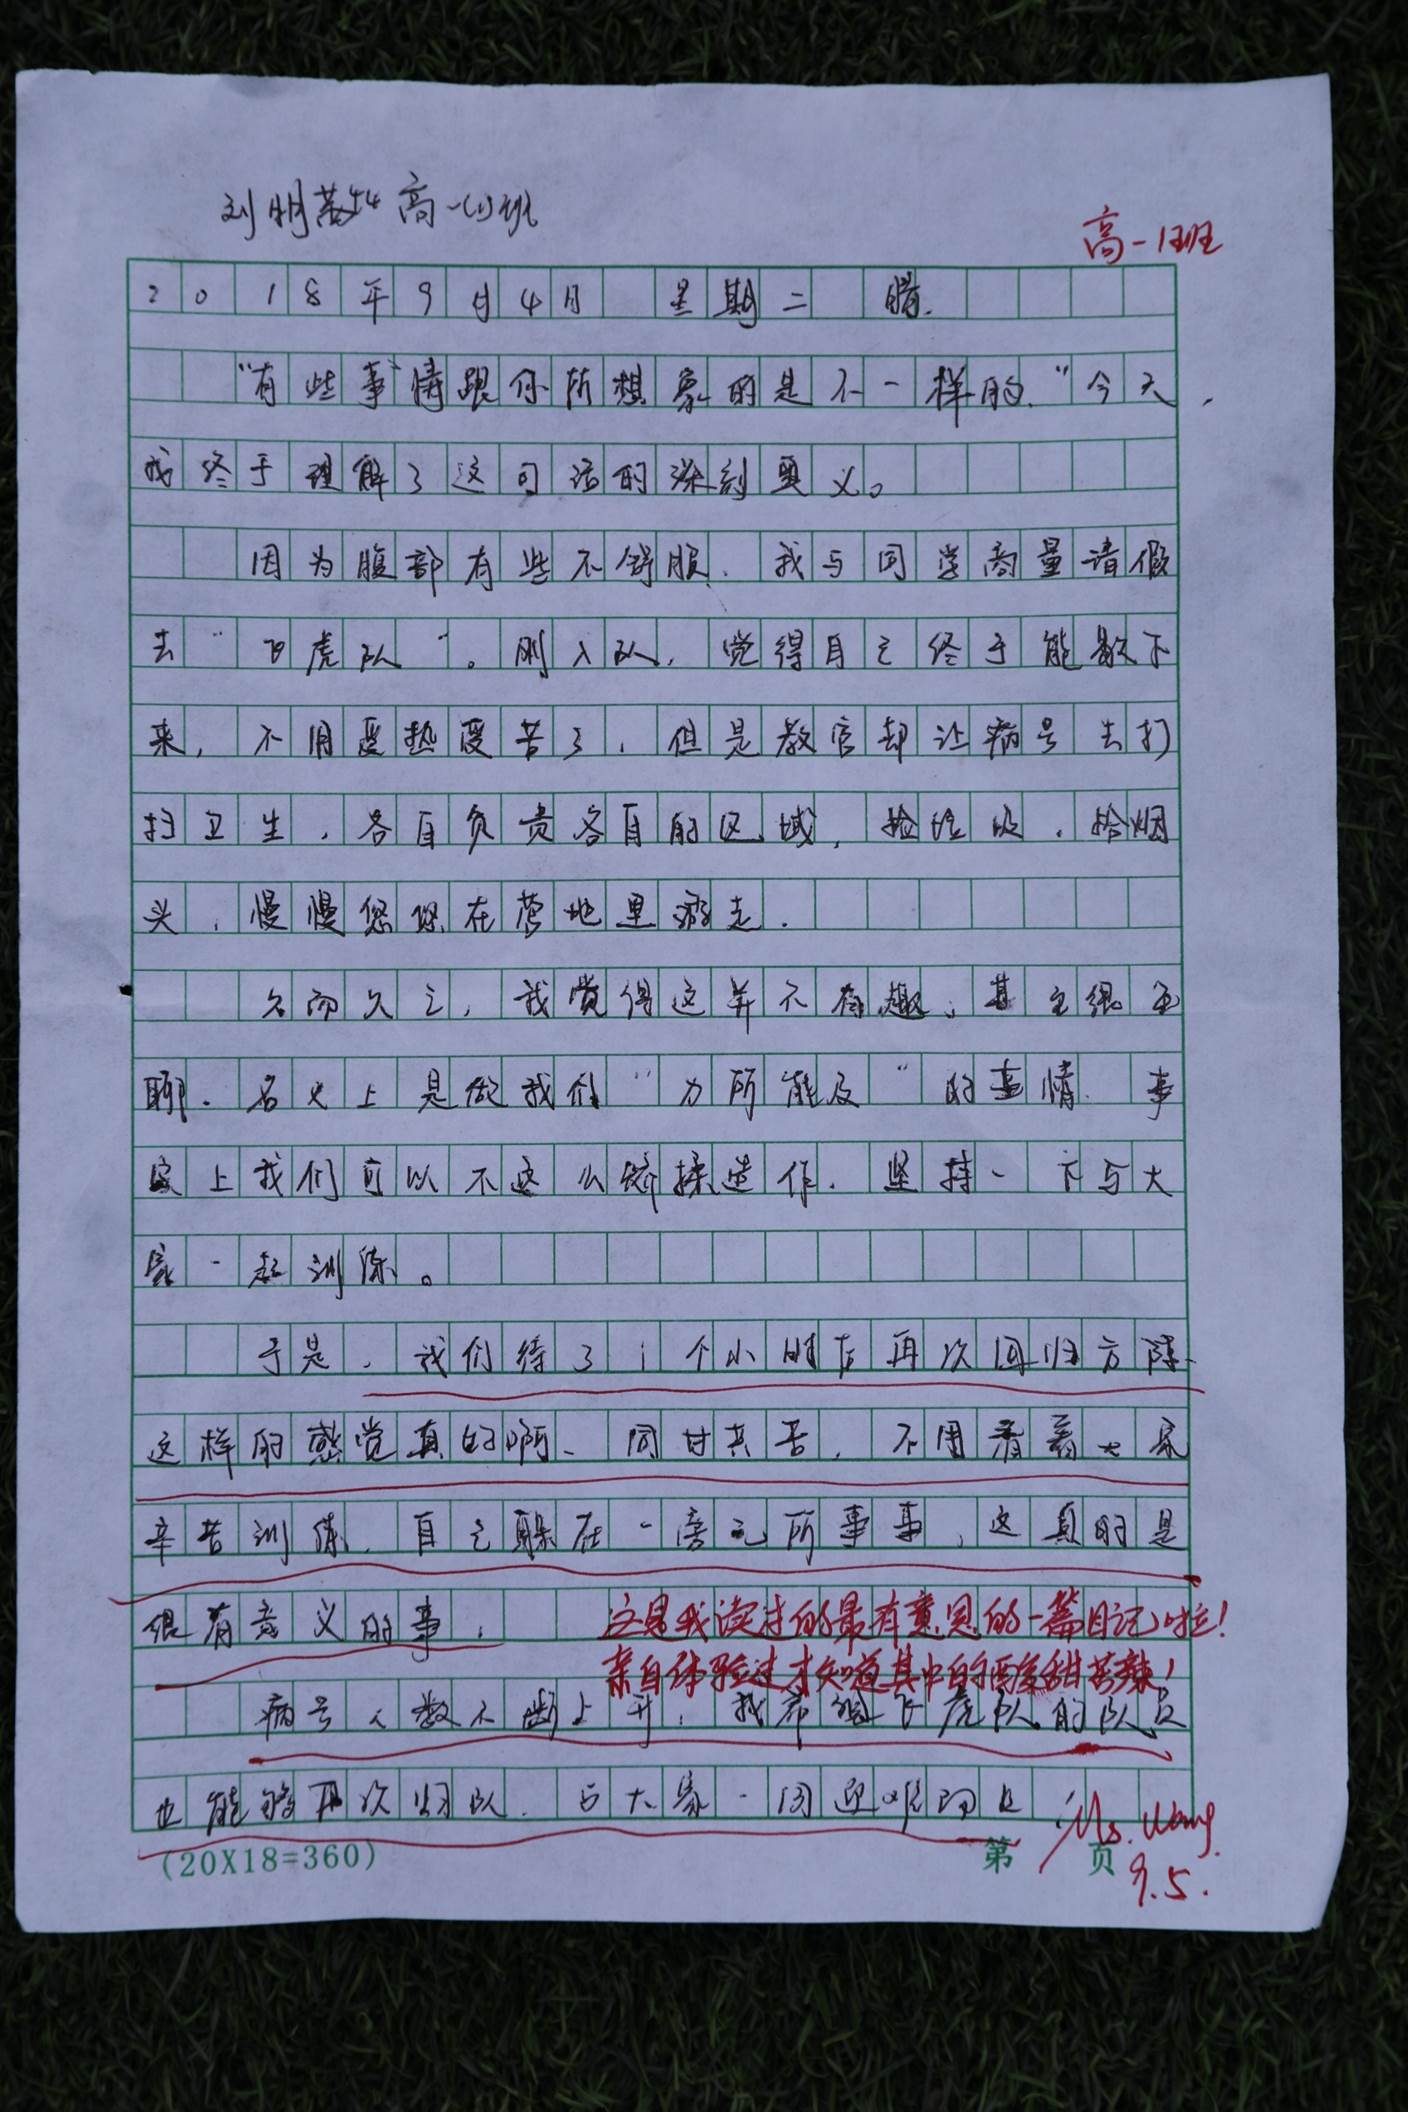 刘明 高一(1)班
高一1班
2018年9月4日 星期二 晴.
“有些事情跟你所想象的是不一样的.”今天,
我终于理解了这句话的深刻奥义。
因为腹部有些不舒服.我与同学商量请假
去“飞虎队”。刚入队,觉得自己终于能歇下
来,不用受热受苦了,但是教官却让病号去打
扫卫生,各自负责各自的区域,捡垃圾,拾烟
头,慢慢悠悠在营地里游走.
久而久之,我觉得这并不有趣,甚至很无
聊.名义上是做我们“力所能及”的事情.事
实上我们可以不这么矫揉造作.坚持一下与大
家一起训练。
于是,我们待了1个小时后再次回归方阵.
这样的感觉真的啊、同甘共苦,不用看着大家
辛苦训练,自己躲在一旁无所事事,这真的是
很有意义的事,
这是我读过的最有意思的一篇日记啦!
亲自体验过才知道其中的酸甜苦辣!
病号人数不断上升,我希望飞虎队的队员
也能够再次归队.与大家一同迎难而上
(20X18=360)
第 页
Ms. Wang.
9.5.